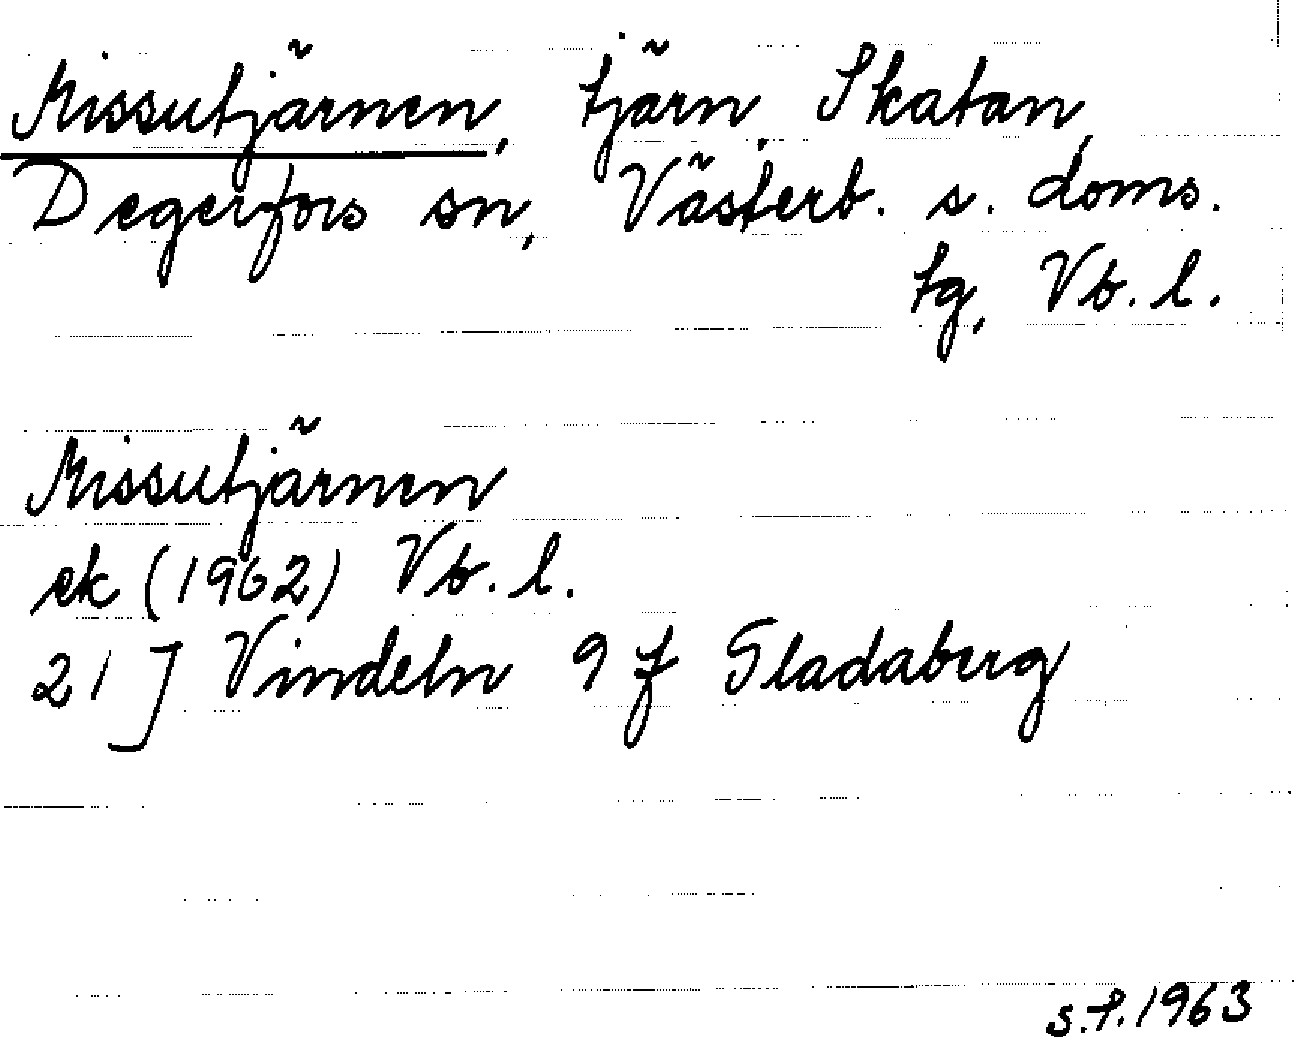 Missutjärnen, tjärn, Skatan,
Degerfors sn, Västerb. s. doms.
tg, Vb. l.
Missutjärnen
ek (1962) Vb. l.
21 J Vindeln 9 f Gladaberg
s.f. 1963